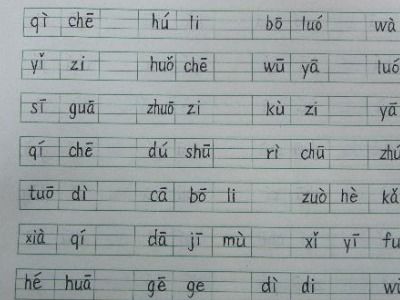 qì chē hú li bō luó wà
yǐ zi huǒ chē wū yā luó
sī guā zhuō zi kù zi yā
qí chē dú shū rì chū zhú
tuō dì cā bō li zuò hè kǎ
xià qí dā jī mù xǐ yī fu
hé huā gē ge dì di